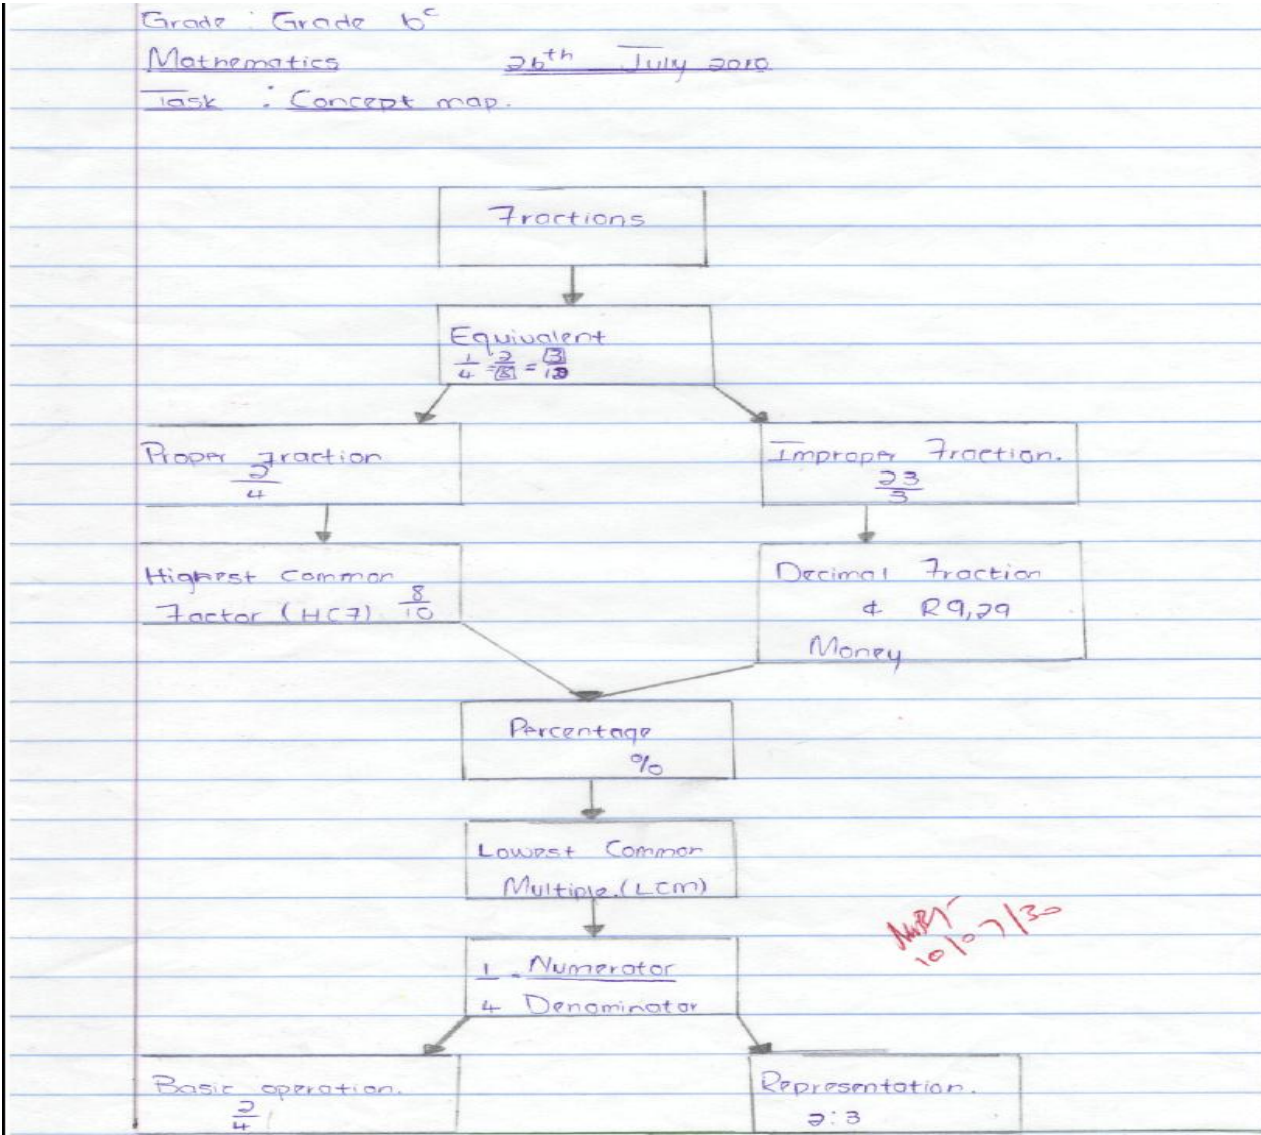 Grade : Grade 6c
Mathematics 26th July 2010
Task : Concept map.
Fractions
Equivalent
1/4 = 2/8 = 3/12
Proper Fraction
2/4
Improper Fraction.
23/3
Highest Common
Factor (HCF) 8/10
Decimal Fraction
¢ R9,29
Money
Percentage
%
Lowest Common
Multiple.(LCM)
1 - Numerator
4 Denominator
10/07/30
Basic operation.
2/4
Representation.
2:3